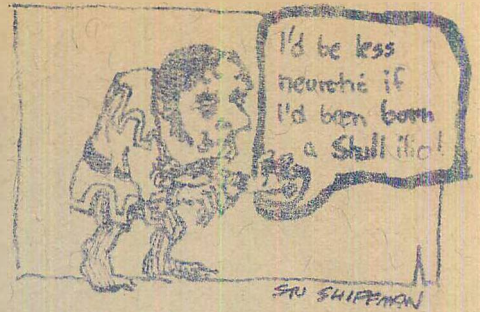 I'd be less
neurotic if
I'd been born
a Stull illo!
STU SHIFFMAN